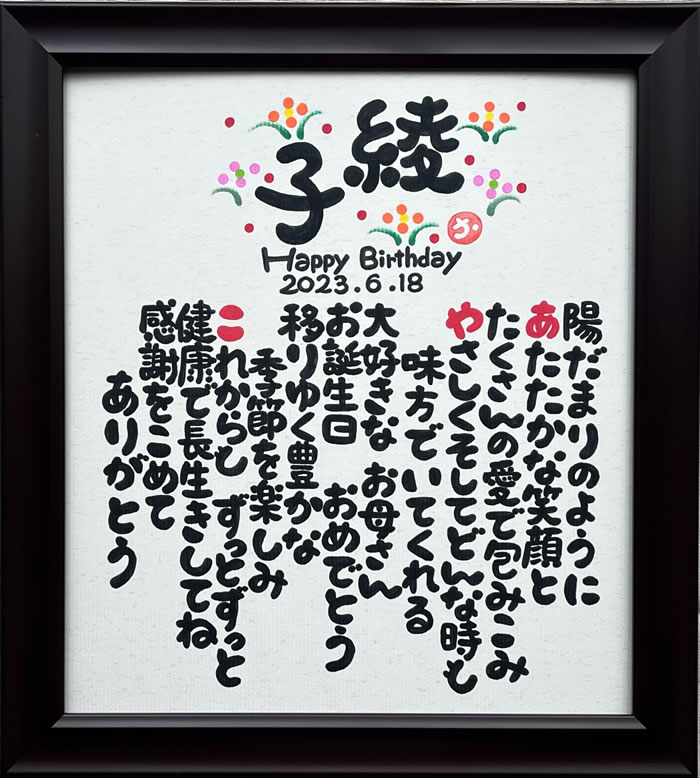 綾子
か
Happy Birthday
2023.6.18
陽だまりのように
あたたかな笑顔と
たくさんの愛で包みこみ
やさしくそしてどんな時も
味方でいてくれる
大好きな お母さん
お誕生日 おめでとう
移りゆく豊かな
季節を楽しみ
これからも ずっとずっと
健康で長生きしてね
感謝をこめて
ありがとう